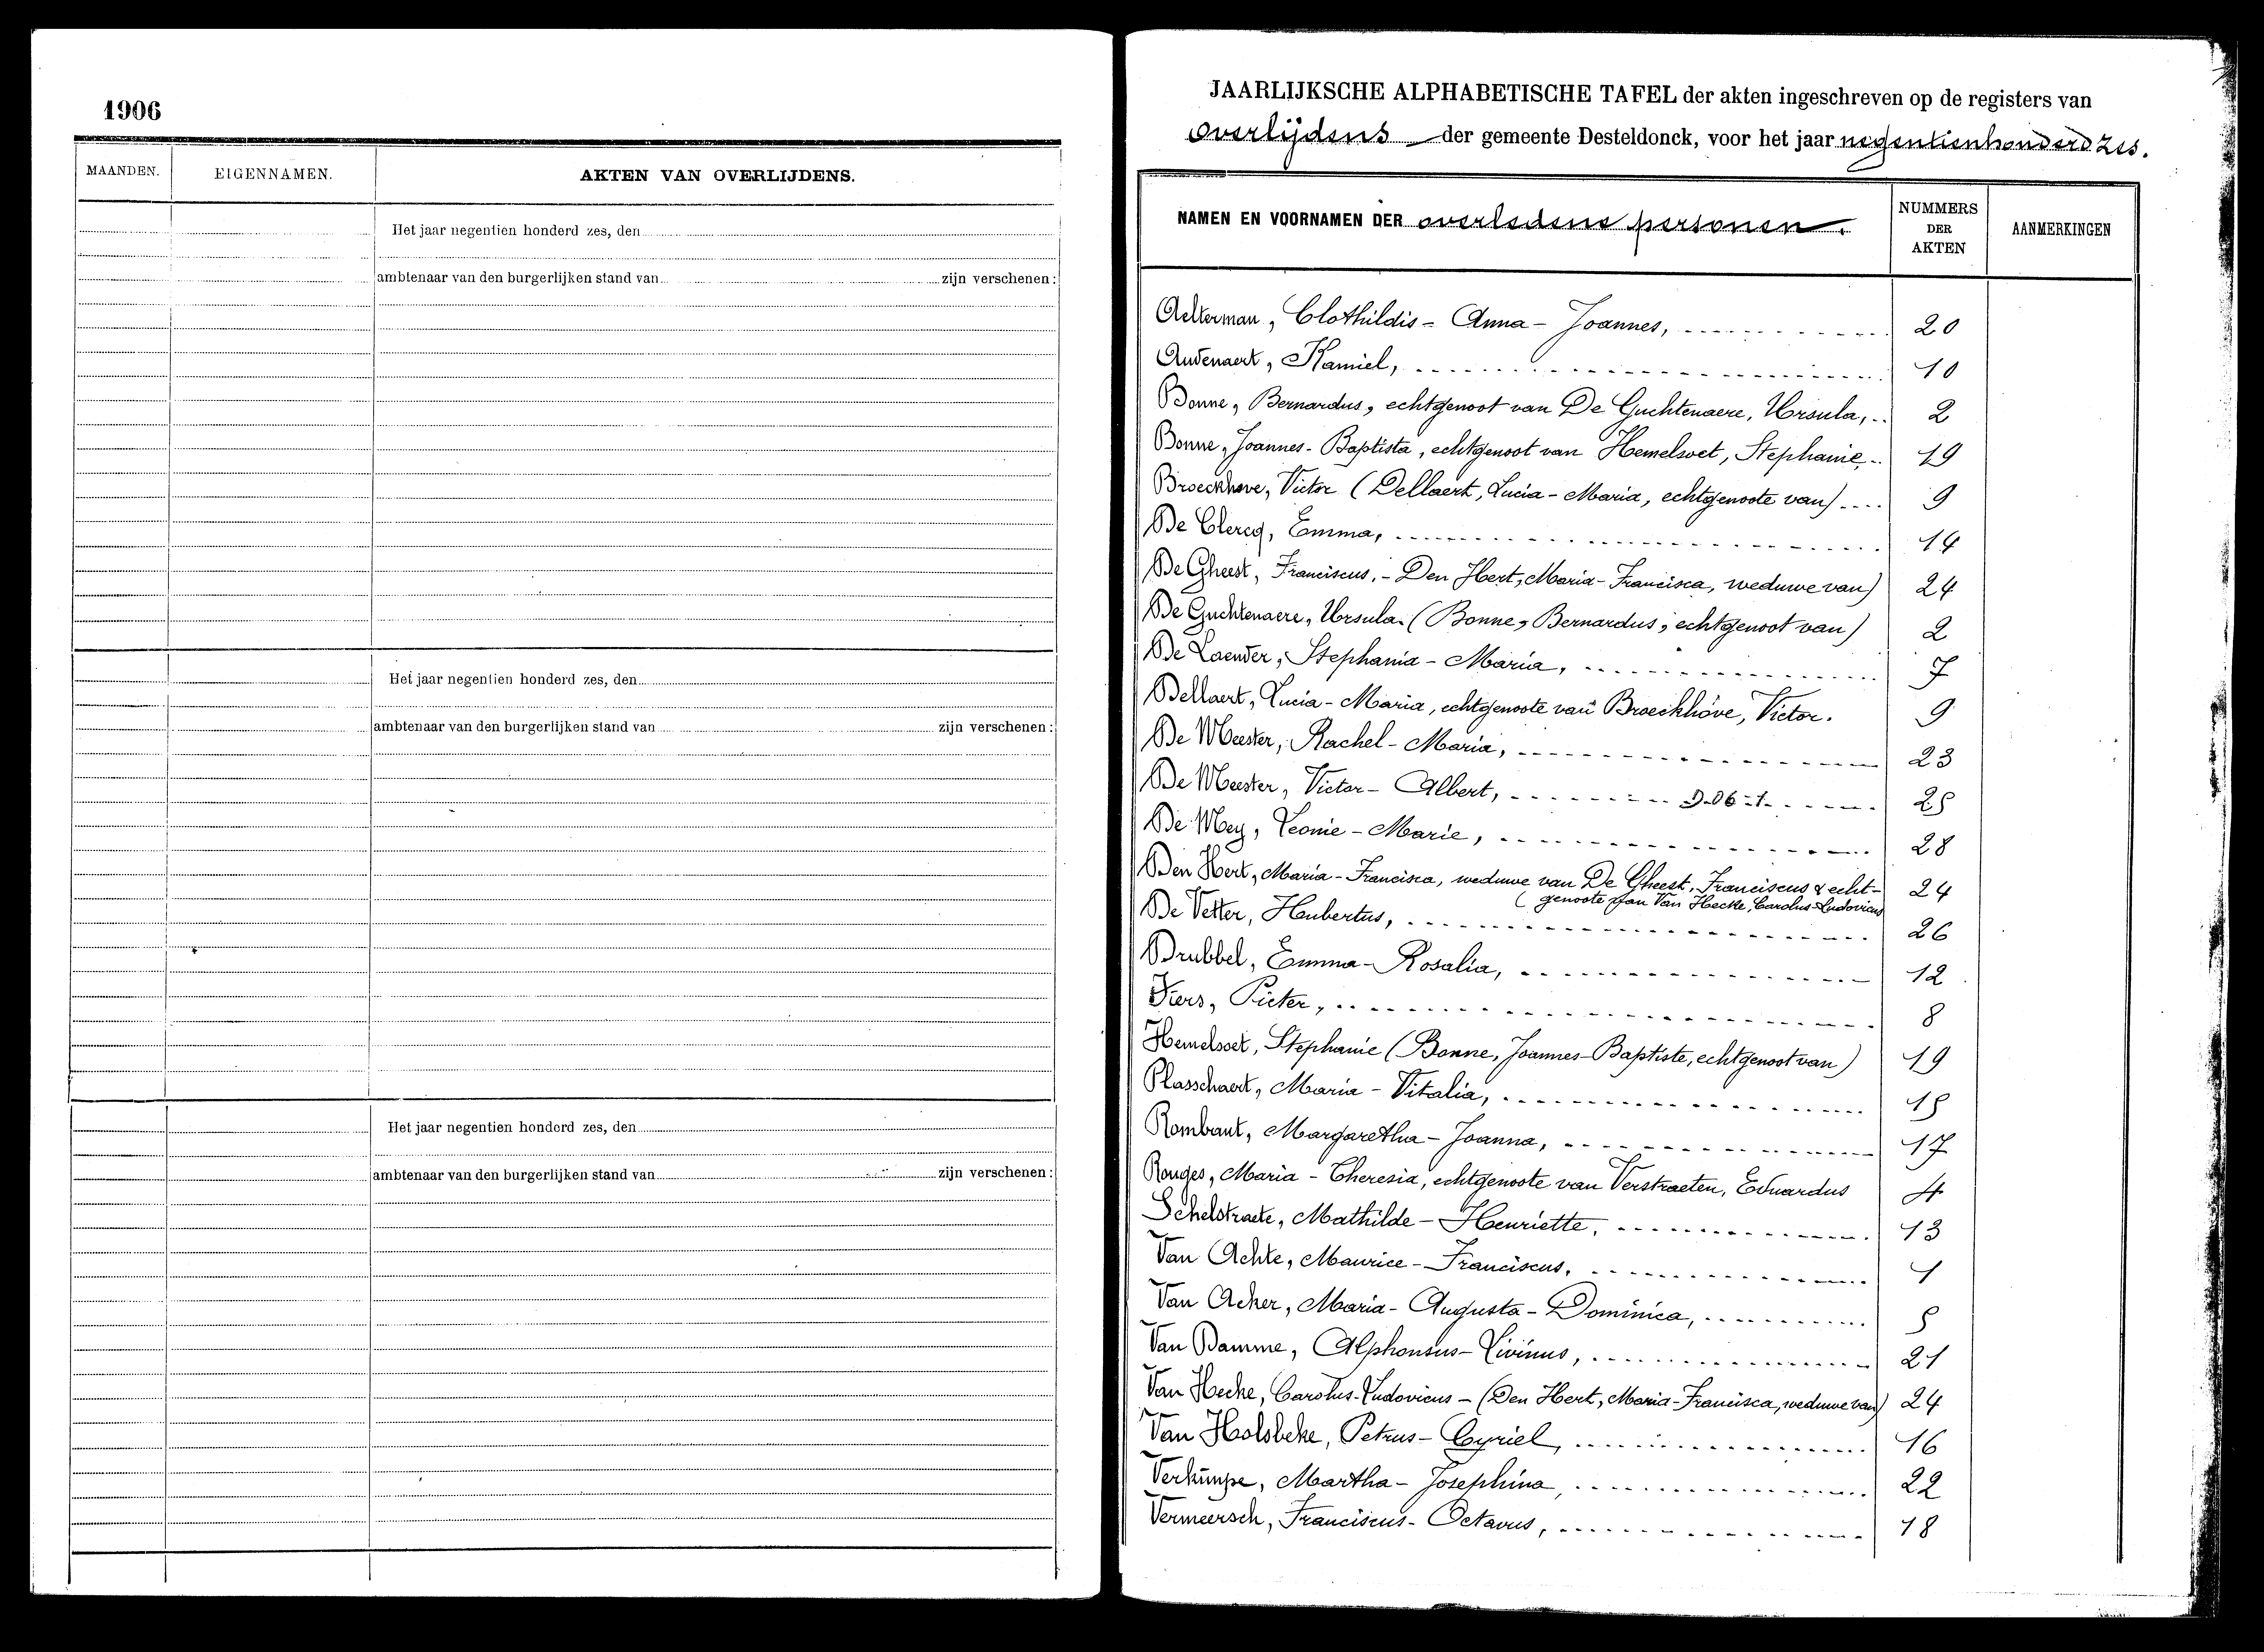 1906
MAANDEN. EIGENNAMEN. AKTEN VAN OVERLIJDENS.
Het jaar negentien honderd zes, den
ambtenaar van den burgerlijken stand van zijn verschenen:
Het jaar negentien honderd zes, den
ambtenaar van den burgerlijken stand van zijn verschenen:
Het jaar negentien honderd zes, den
ambtenaar van den burgerlijken stand van zijn verschenen:
JAARLIJKSCHE ALPHABETISCHE TAFEL der akten ingeschreven op de registers van
overlijdens der gemeente Desteldonck, voor het jaar negentienhonderd zes.
NAMEN EN VOORNAMEN DER overledene personen. NUMMERS DER AKTEN AANMERKINGEN
Aelterman, Clothildis - Anna - Joannes, 20
Audenaert, Kamiel, 10
Bonne, Bernardus, echtgenoot van De Guchtenaere, Ursula, 2
Bonne, Joannes-Baptista, echtgenoot van Hemelsoet, Stephanie, 19
Broeckhove, Victor (Dellaert, Lucia-Maria, echtgenoote van) 9
De Clercq, Emma, 14
De Gheest, Franciscus, - Den Hert, Maria-Francisca, weduwe van) 24
De Guchtenaere, Ursula. (Bonne, Bernardus, echtgenoot van) 2
De Laender, Stephania - Maria, 7
Dellaert, Lucia-Maria, echtgenoote van Broeckhove, Victor. 9
De Meester, Rachel-Maria, 23
De Meester, Victor-Albert, 25
De Mey, Leonie-Marie, 28
Den Hert, Maria-Francisca, weduwe van De Gheest, Franciscus & echt- 24
(genoote van Van Hecke, Carolus-Ludovicus
De Vetter, Hubertus, 26
Drubbel, Emma-Rosalia, 12
Fiers, Pieter, 8
Hemelsoet, Stephanie (Bonne, Joannes-Baptiste, echtgenoot van) 19
Plasschaert, Maria-Vitalia, 15
Rombaut, Margaretha-Joanna, 17
Rouges, Maria-Theresia, echtgenoote van Verstraeten, Eduardus 4
Schelstraete, Mathilde-Henriette, 13
Van Achte, Maurice-Franciscus, 1
Van Acker, Maria-Augusta-Dominica, 5
Van Damme, Alphonsus-Livinus, 21
Van Hecke, Carolus-Ludovicus - (Den Hert, Maria-Francisca, weduwe van) 24
Van Holsbeke, Petrus-Cyriel, 16
Martha-Josephina, 22
Vermeersch, Franciscus-Octavus, 18